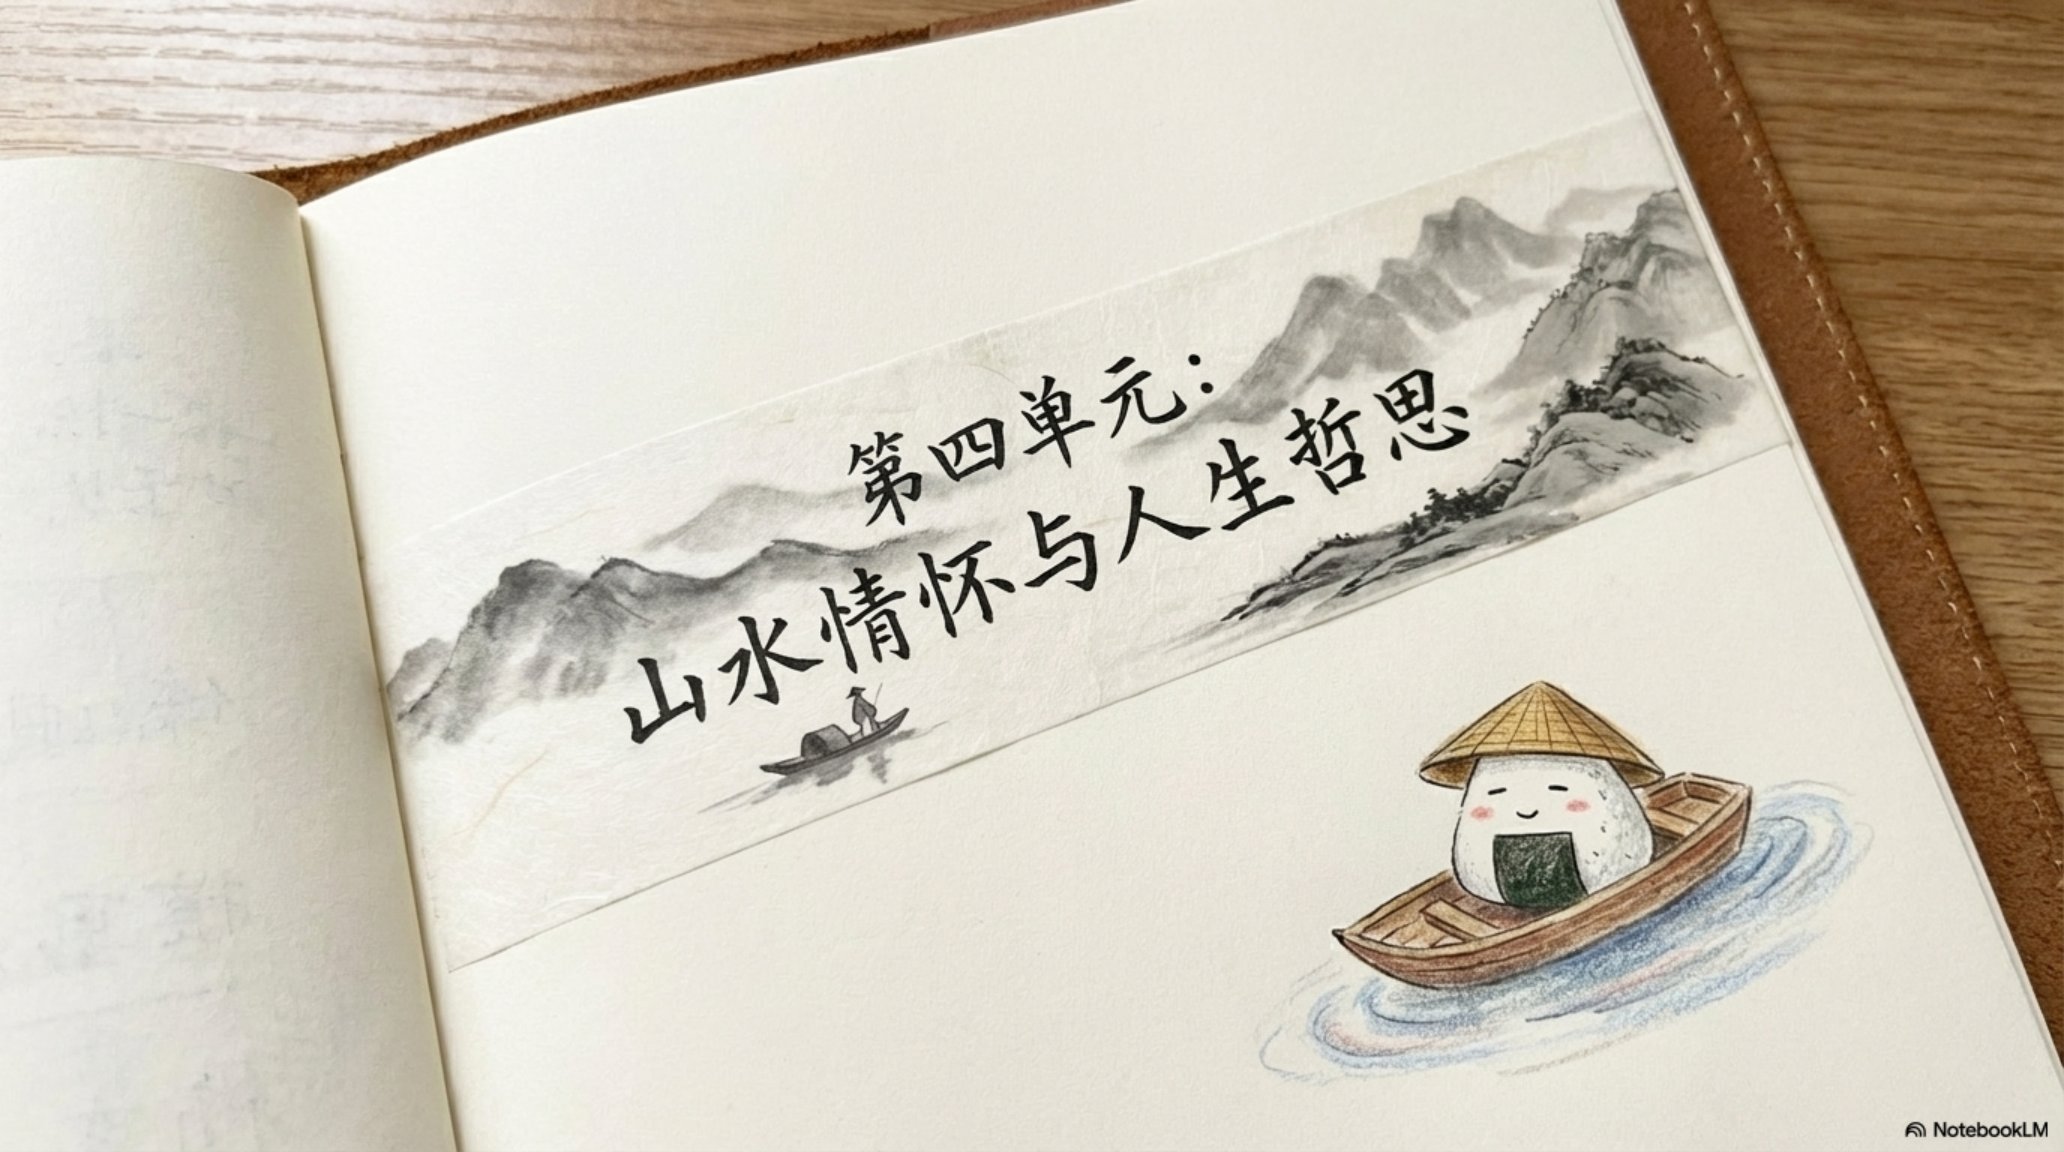 第四单元：
山水情怀与人生哲思
NotebookLM